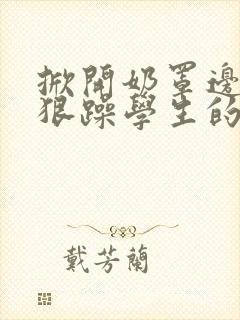 掀開奶罩邊
狠躁學生的
戴芳蘭